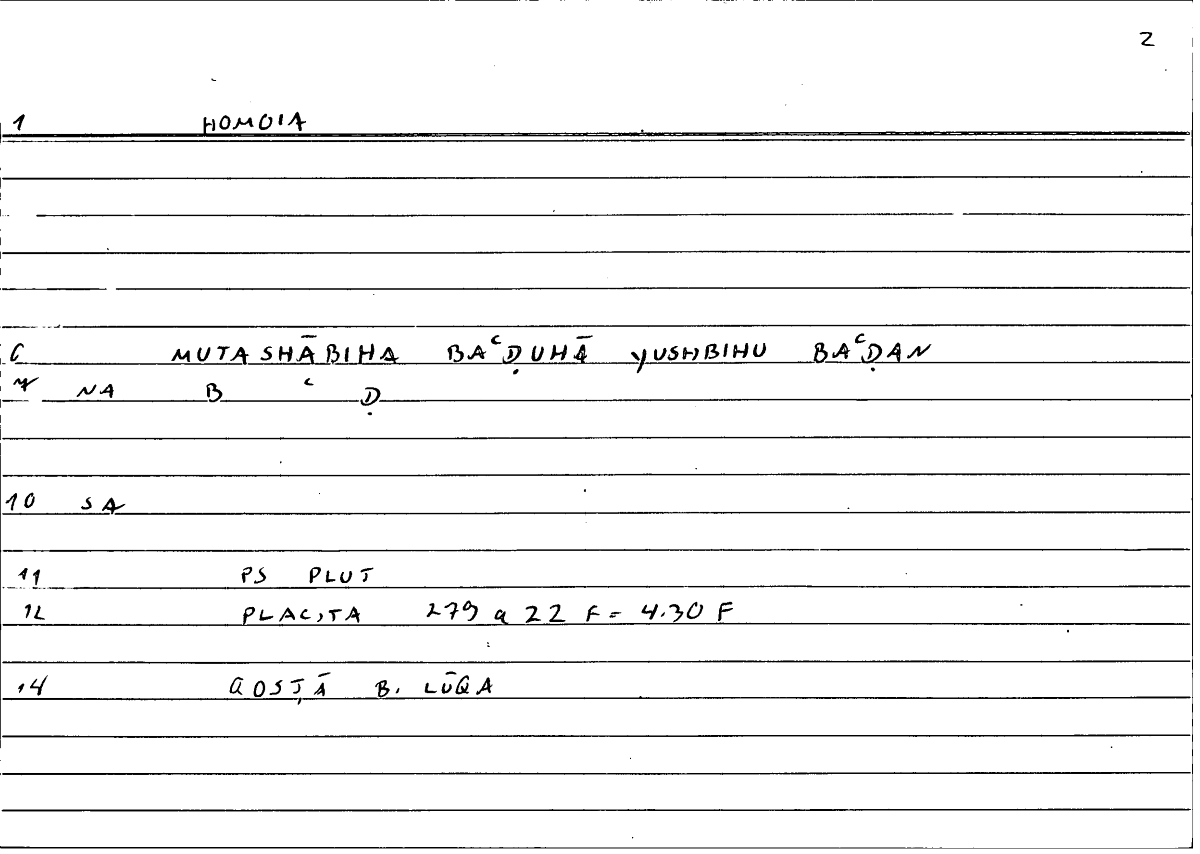 2
1 HOMOIA
6 MUTASHĀBIHA BAᶜḌUHĀ YUSHBIHU BAᶜḌAN
NA B ᶜ Ḍ
10 SA
11 PS PLUT
12 PLACITA 279 a 22 F = 4.30 F
14 QOSṬĀ B. LŪQA